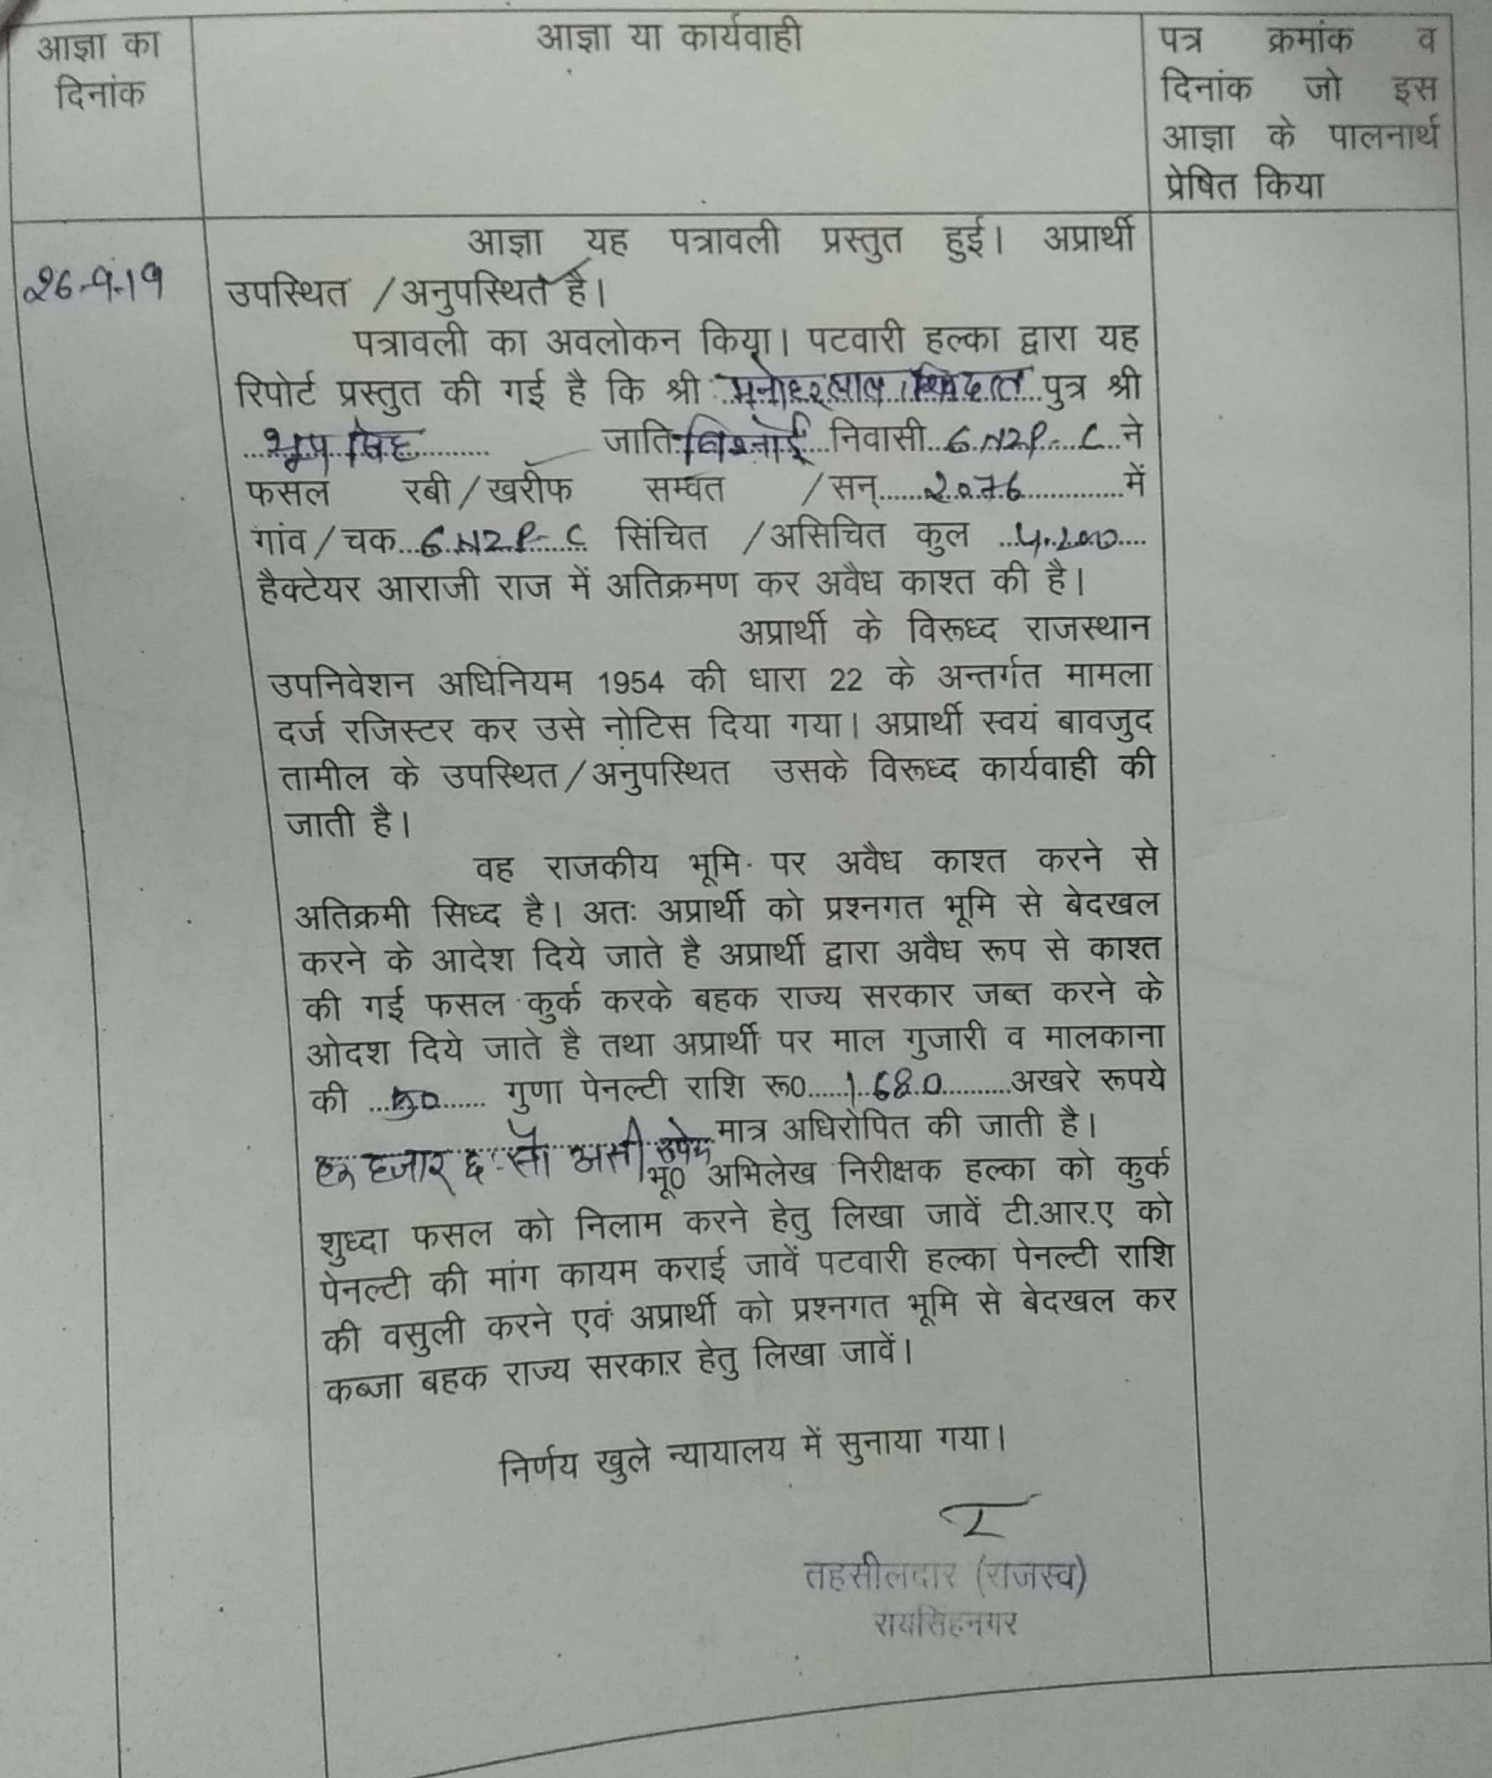 आज्ञा का
दिनांक
आज्ञा या कार्यवाही
पत्र क्रमांक व
दिनांक जो इस
आज्ञा के पालनार्थ
प्रेषित किया
26-9-19
आज्ञा यह पत्रावली प्रस्तुत हुई। अप्रार्थी
उपस्थित /अनुपस्थित है।
पत्रावली का अवलोकन किया। पटवारी हल्का द्वारा यह
रिपोर्ट प्रस्तुत की गई है कि श्री मनोहरलाल, शिवदत्त पुत्र श्री
भूप सिंह जाति बिश्नोई निवासी 6 NZP-C ने
फसल रबी/खरीफ सम्वत /सन् 2076 में
गांव/चक 6 NZP-C सिंचित /असिचित कुल 4.200
हैक्टेयर आराजी राज में अतिक्रमण कर अवैध काश्त की है।
अप्रार्थी के विरूध्द राजस्थान
उपनिवेशन अधिनियम 1954 की धारा 22 के अन्तर्गत मामला
दर्ज रजिस्टर कर उसे नोटिस दिया गया। अप्रार्थी स्वयं बावजुद
तामील के उपस्थित/अनुपस्थित उसके विरूध्द कार्यवाही की
जाती है।
वह राजकीय भूमि पर अवैध काश्त करने से
अतिक्रमी सिध्द है। अतः अप्रार्थी को प्रश्नगत भूमि से बेदखल
करने के आदेश दिये जाते है अप्रार्थी द्वारा अवैध रूप से काश्त
की गई फसल कुर्क करके बहक राज्य सरकार जब्त करने के
ओदश दिये जाते है तथा अप्रार्थी पर माल गुजारी व मालकाना
की 50 गुणा पेनल्टी राशि रू0 1680 अखरे रूपये
एक हजार छः सौ अस्सी रुपये मात्र अधिरोपित की जाती है।
भू0 अभिलेख निरीक्षक हल्का को कुर्क
शुध्दा फसल को निलाम करने हेतु लिखा जावें टी.आर.ए को
पेनल्टी की मांग कायम कराई जावें पटवारी हल्का पेनल्टी राशि
की वसुली करने एवं अप्रार्थी को प्रश्नगत भूमि से बेदखल कर
कब्जा बहक राज्य सरकार हेतु लिखा जावें।
निर्णय खुले न्यायालय में सुनाया गया।
तहसीलदार (राजस्व)
रायसिंहनगर